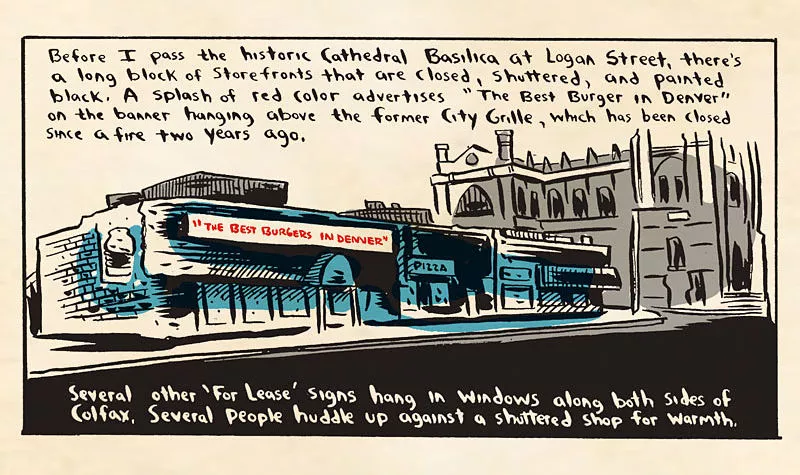 Before I pass the historic Cathedral Basilica at Logan Street, there's
a long block of storefronts that are closed, shuttered, and painted
black. A splash of red color advertises "The Best Burger in Denver"
on the banner hanging above the former City Grille, which has been closed
since a fire two years ago.
"THE BEST BURGERS IN DENVER"
PIZZA
Several other 'For Lease' signs hang in windows along both sides of
Colfax. Several people huddle up against a shuttered shop for warmth.